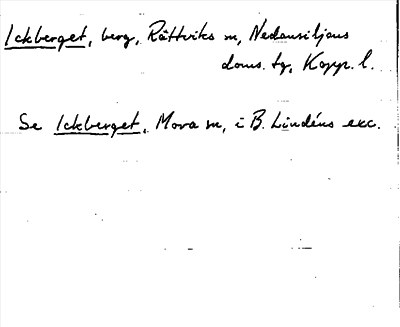 Ickberget, berg, Rättviks sn, Nedansiljans
doms. tg, Kopp. l.
Se Ickberget, Mora sn, i B. Lindéns exc.